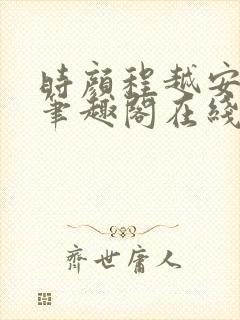 時顏程越安
笔趣閣在綫
齊世庸人